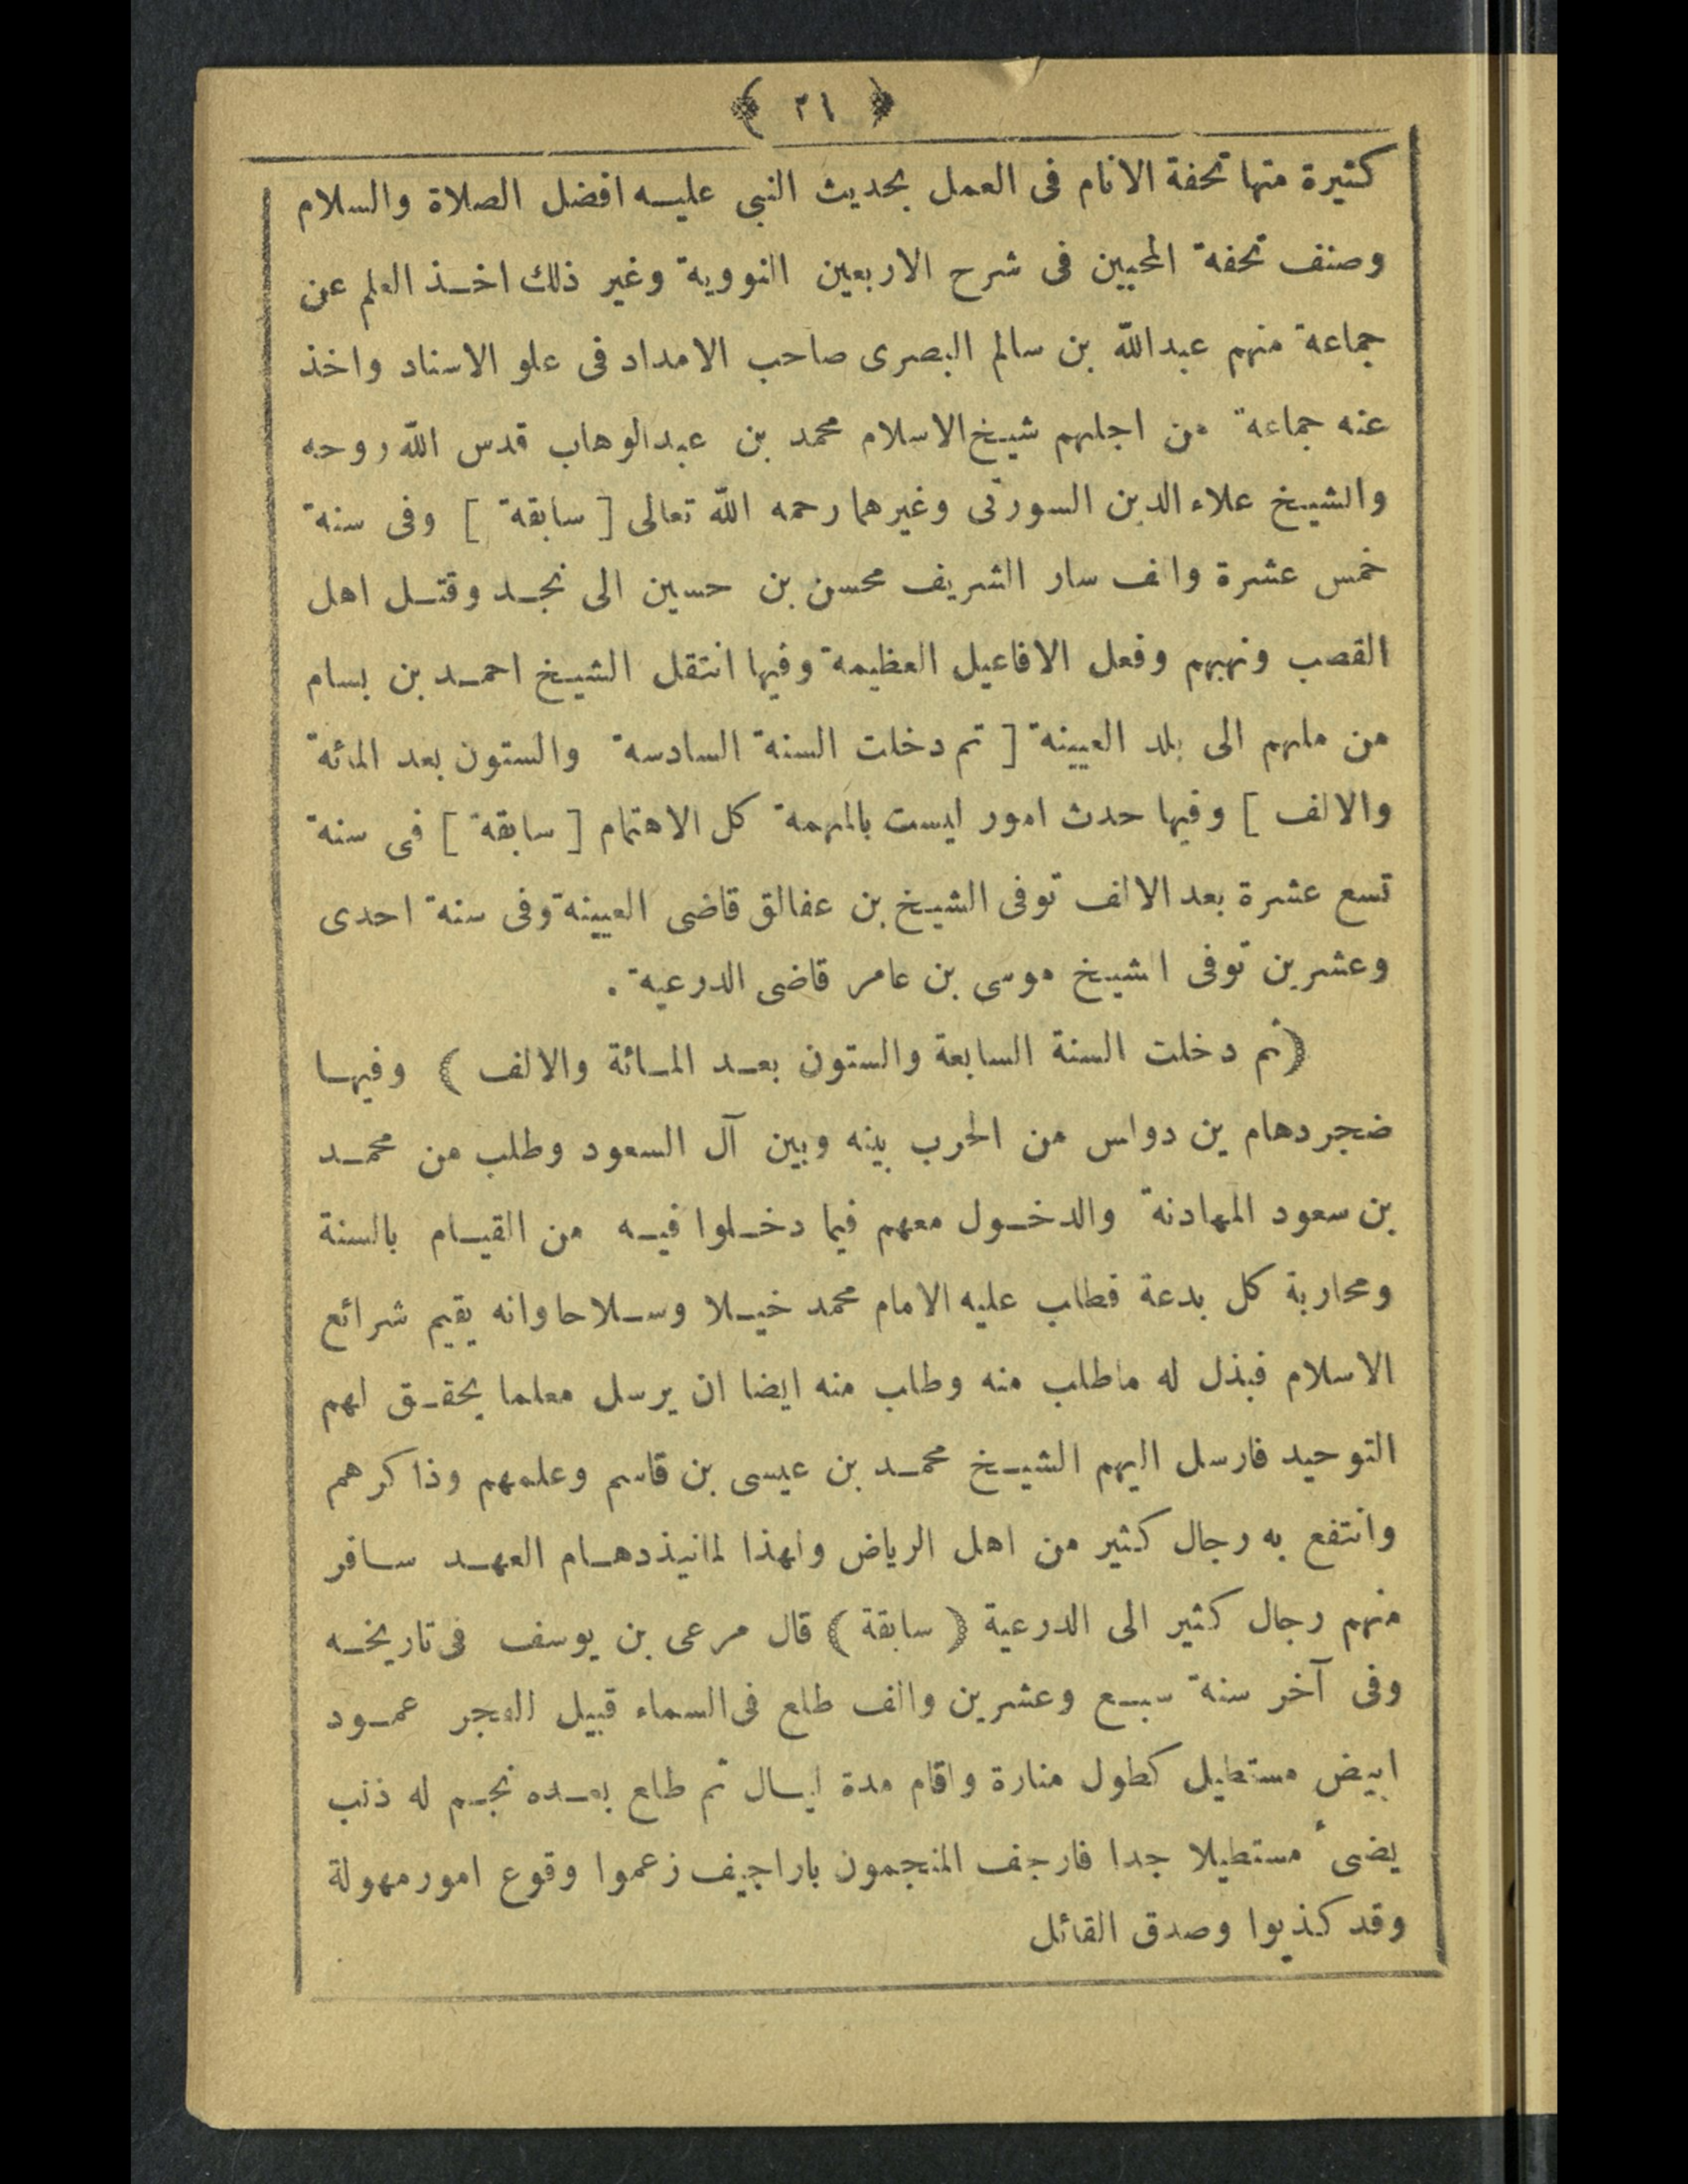 ﴿ ٢١ ﴾
كثيرة منها تحفة الانام فى العمل بحديث النبى عليه افضل الصلاة والسلام
وصنف تحفة المحبين فى شرح الاربعين النووية وغير ذلك اخذ العلم عن
جماعة منهم عبدالله بن سالم البصرى صاحب الامداد فى علو الاسناد واخذ
عنه جماعة من اجلهم شيخ الاسلام محمد بن عبدالوهاب قدس الله روحه
والشيخ علاء الدين السورتى وغيرهما رحمه الله تعالى [ سابقة ] وفى سنة
خمس عشرة والف سار الشريف محسن بن حسين الى نجد وقتل اهل
القصب ونهبهم وفعل الافاعيل العظيمة وفيها انتقل الشيخ احمد بن بسام
من ملهم الى بلد العيينة [ ثم دخلت السنة السادسة والستون بعد المائة
والالف ] وفيها حدث امور ليست بالمهمة كل الاهتمام [ سابقة ] فى سنة
تسع عشرة بعد الالف توفى الشيخ بن عفالق قاضى العيينة وفى سنة احدى
وعشرين توفى الشيخ موسى بن عامر قاضى الدرعية .
( ثم دخلت السنة السابعة والستون بعد المائة والالف ) وفيها
ضجر دهام بن دواس من الحرب بينه وبين آل السعود وطلب من محمد
بن سعود المهادنة والدخول معهم فيما دخلوا فيه من القيام بالسنة
ومحاربة كل بدعة فطلب عليه الامام محمد خيلا وسلاحا وانه يقيم شرائع
الاسلام فبذل له ماطلب منه وطلب منه ايضا ان يرسل معلما يحقق لهم
التوحيد فارسل اليهم الشيخ محمد بن عيسى بن قاسم وعلمهم وذاكرهم
وانتفع به رجال كثير من اهل الرياض ولهذا لمانبذدهام العهد سافر
منهم رجال كثير الى الدرعية ( سابقة ) قال مرعى بن يوسف فى تاريخه
وفى آخر سنة سبع وعشرين والف طلع فى السماء قبيل الفجر عمود
ابيض مستطيل كطول منارة واقام مدة ليال ثم طلع بعده نجم له ذنب
يضىء مستطيلا جدا فارجف المنجمون باراجيف زعموا وقوع امور مهولة
وقد كذبوا وصدق القائل